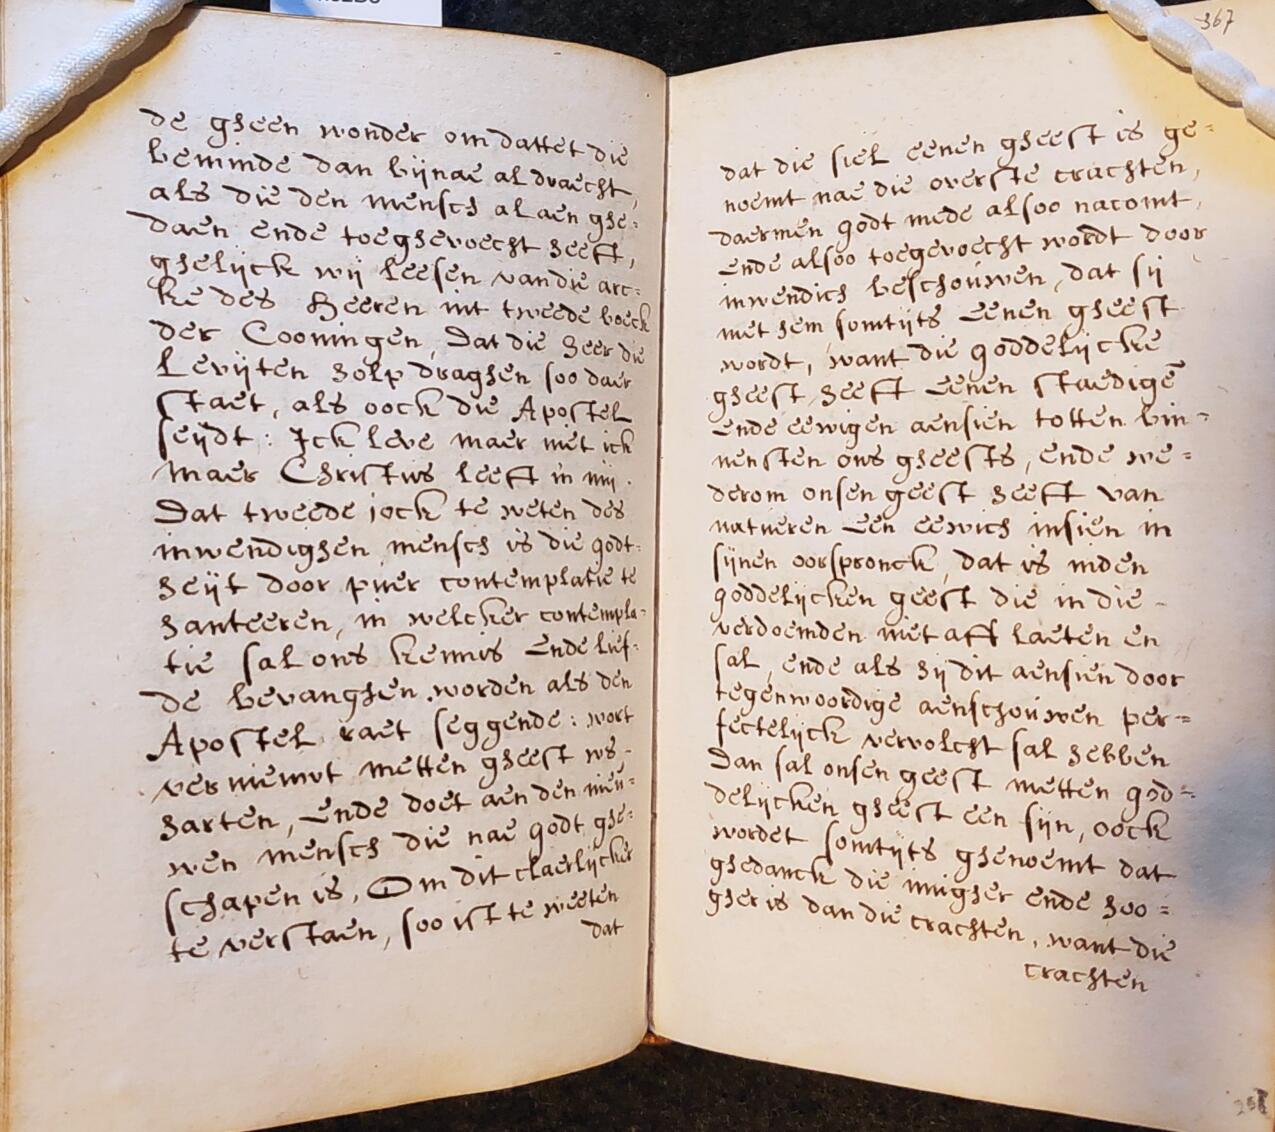 de gheen wonder omdattet die
beminde dan bijnae al draecht,
als die den mensch al aen ghe=
daen ende toeghevoecht heeft,
ghelijck wij leesen van die arc=
ke des Heeren int tweede boeck
der Coomingen, Dat die heer die
Levijten holp draghen soo daer
staet, als oock die Apostel
seijdt: Ick leve maer niet ick
maer Christus leeft in mij.
Dat tweede jock te weten des
inwendighen mensch is die godt=
heijt door puer contemplatie te
hanteeren, in welcker contempla=
tie sal ons kennis ende lief=
de bevanghen worden als den
Apostel raet seggende: wort
verniewt metten gheest ws,
harten, ende doet aen den nieu=
wen mensch die nae godt ghe=
schapen is, Om dit claerlijcker
te verstaen, soo ist te weeten
dat
367
dat die siel eenen gheest is ge=
noemt nae die overste crachten,
daermen godt mede alsoo nacomt,
ende alsoo toegevoecht wordt door
inwendich beschouwen, dat sij
met hem somtijts eenen gheest
wordt, want die goddelijcke
gheest heeft eenen staedigē
ende eewigen aensien totten bin=
nensten ons gheests, ende we=
derom onsen geest heeft van
natueren een eewich insien in
sijnen oorspronck, dat is inden
goddelijcken geest die in die
verdoemden niet aff laeten en
sal, ende als hij dit aensien door
tegenwoordige aenschouwen per=
fectelijck vervolcht sal hebben
Dan sal onsen geest metten god=
delijcken gheest een sijn, oock
wordet somtijts ghenoemt dat
ghedanck die innigher ende hoo=
gher is dan die crachten, want die
crachten